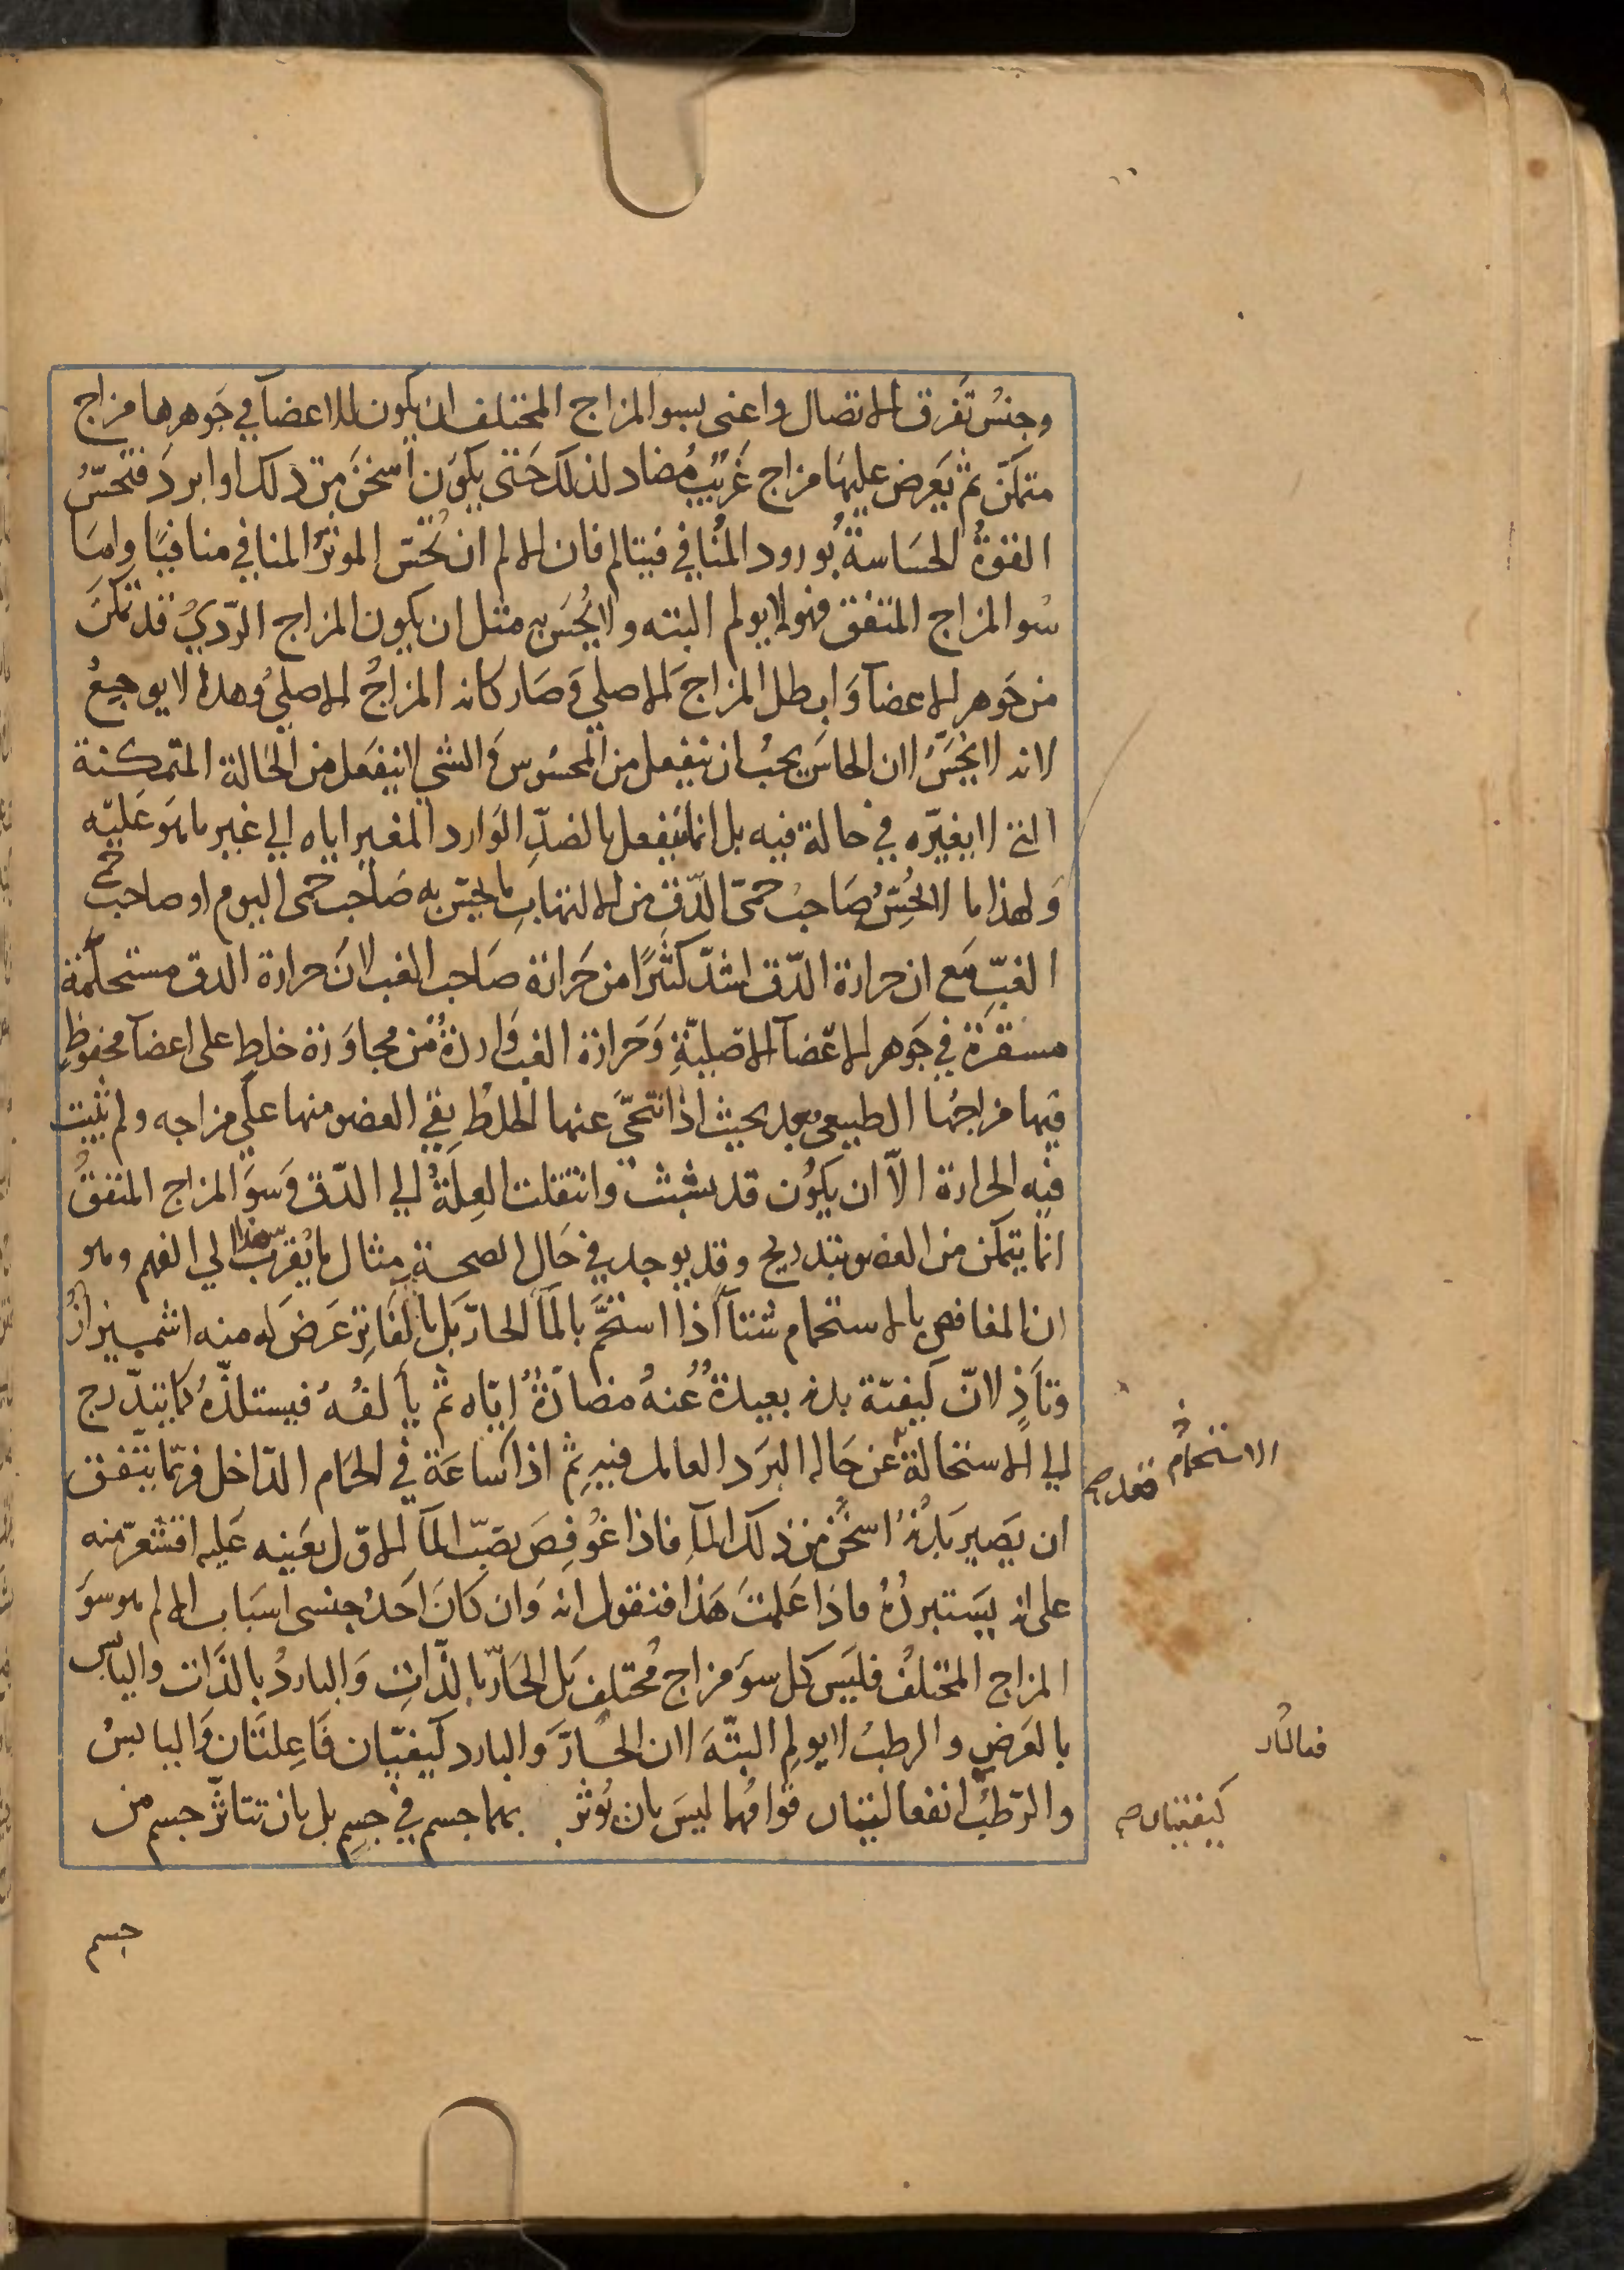 وجنس تفرق الاتصال واعنى بسو المزاج المختلف ان يكون للاعضا في جوهرها مزاج
متمكن ثم يعرض عليها مزاج غريب مضاد لذلك حتى يكون اسخن من ذلك او ابرد فتحس
القوة الحساسة بورود المنافي فيتالم فان الالم ان تحس الموثر المنافي منافيا واما
سو المزاج المتفق فهو لا يولم البته ولا يحس به مثل ان يكون المزاج الردي قد تمكن
من جوهر الاعضا وابطل المزاج الاصلي وصار كانه المزاج الاصلي وهذا لا يوجع
لانه لا يحس لان الحاس يجب ان ينفعل من المحسوس والشي لا ينفعل من الحالة المتمكنة
التي لا يغيره في حالة فيه بل انما ينفعل بالضد الوارد المغير اياه الي غير ما هو عليه
ولهذا ما لا يحس صاحب حمى الدق من الالتهاب ما يحس به صاحب حمى اليوم او صاحب حمى
الغب مع ان حرارة الدق اشد كثيرا من حرارة صاحب الغب لان حرارة الدق مستحكمة
مستقرة في جوهر الاعضا الاصلية وحرارة الغب واردة من مجاورة خلط على اعضا محفوظ
فيها مزاجها الطبيعي بعد بحيث اذا تنحى عنها الخلط بقي العضو منها على مزاجه ولم يثبت
فيه الحرارة الا ان يكون قد تشبثت وانتقلت العلة الي الدق وسو المزاج المتفق
انما يتمكن من العضو بتدريج وقد يوجد في حال الصحة مثال ما يقرب هذا الي الفهم وهو
ان المغافص بالاستحمام شتا اذا استحم بالما الحار بل بالفاتر عرض له منه اشميزاز
وتاذ لان كيفية بدنه بعيدة عنه مضادة اياه ثم يألفه فيستلذه كما يتدرج
الي الاستحالة عن حاله البرد العامل فيه ثم اذا ساعة في الحمام الداخل فربما يتفق
ان يصير بدنه اسخن من ذلك الما فاذا غوفص بصب الما الاول بعينه عليه اقشعر منه
على انه يستبرده فاذا علمت هذا فنقول انه وان كان احد جنسي اسباب الالم هو سو
المزاج المختلف فليس كل سو مزاج مختلف بل الحار بالذات والبارد بالذات واليابس
بالعرض والرطب لا يولم البتة لان الحار والبارد كيفيتان فاعلتان واليابس
والرطب انفعاليتان قوامهما ليس بان يوثر بهما جسم في جسم بل بان تتاثر جسم من
جسم
الاستحمام
قعد صح
كيفيتان صح